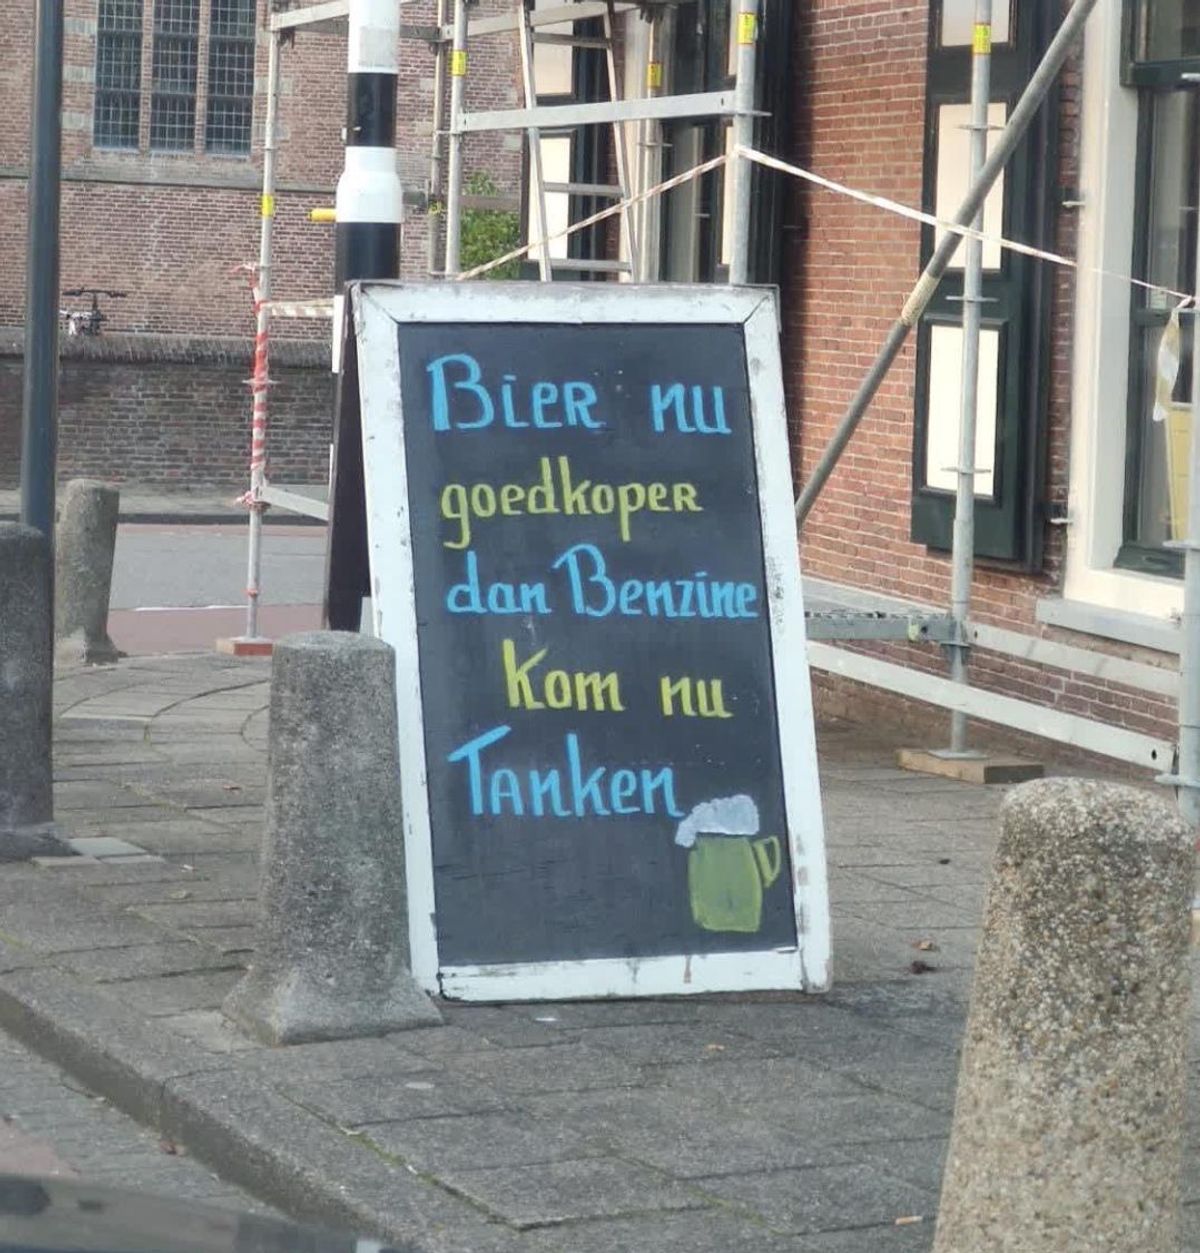 Bier nu
goedkoper
dan Benzine
Kom nu
Tanken